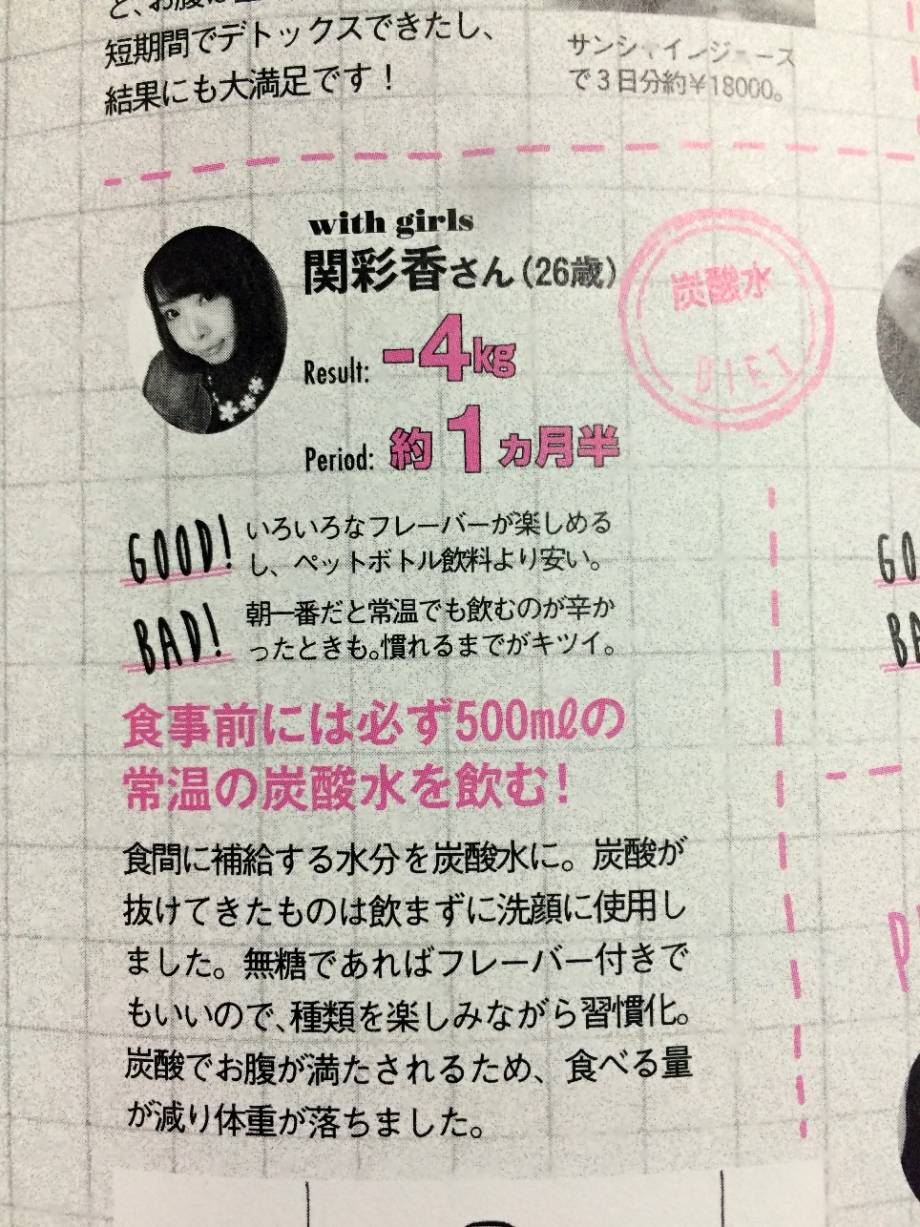 短期間でデトックスできたし、
結果にも大満足です！
サンシャインジュース
で３日分約￥18000。
with girls
関彩香さん（26歳）
Result: -4kg
Period: 約1ヵ月半
炭酸水
DIET
GOOD!
いろいろなフレーバーが楽しめる
し、ペットボトル飲料より安い。
BAD!
朝一番だと常温でも飲むのが辛か
ったときも。慣れるまでがキツイ。
食事前には必ず500mlの
常温の炭酸水を飲む！
食間に補給する水分を炭酸水に。炭酸が
抜けてきたものは飲まずに洗顔に使用し
ました。無糖であればフレーバー付きで
もいいので、種類を楽しみながら習慣化。
炭酸でお腹が満たされるため、食べる量
が減り体重が落ちました。